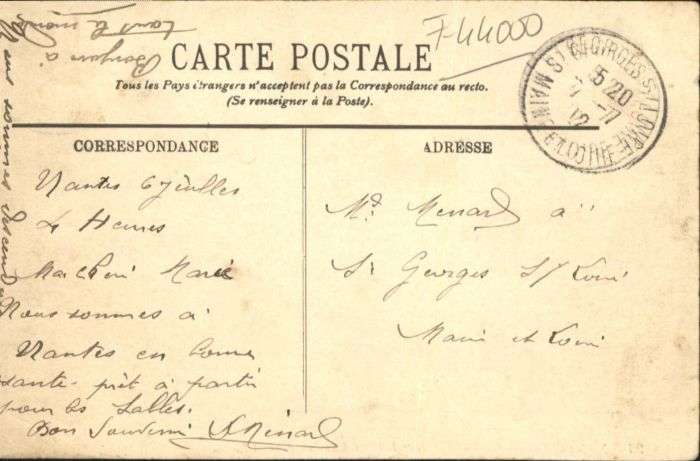 Bonjour à
tout le monde
7-44000
CARTE POSTALE
Tous les Pays étrangers n'acceptent pas la Correspondance au recto.
(Se renseigner à la Poste).
ST GEORGES S/ LOIRE
MAINE-ET-LOIRE
5 20
7 -7
12
CORRESPONDANCE
ADRESSE
Nantes 6 Juillet
4 Heures
Ma Marie
Nous sommes à
Nantes en bonne
santé prêt à partir
pour les Salles.
Bon Souvenir Menard
Nous sommes
Md. Menard à
St Georges S/ Loire
Maine et Loire